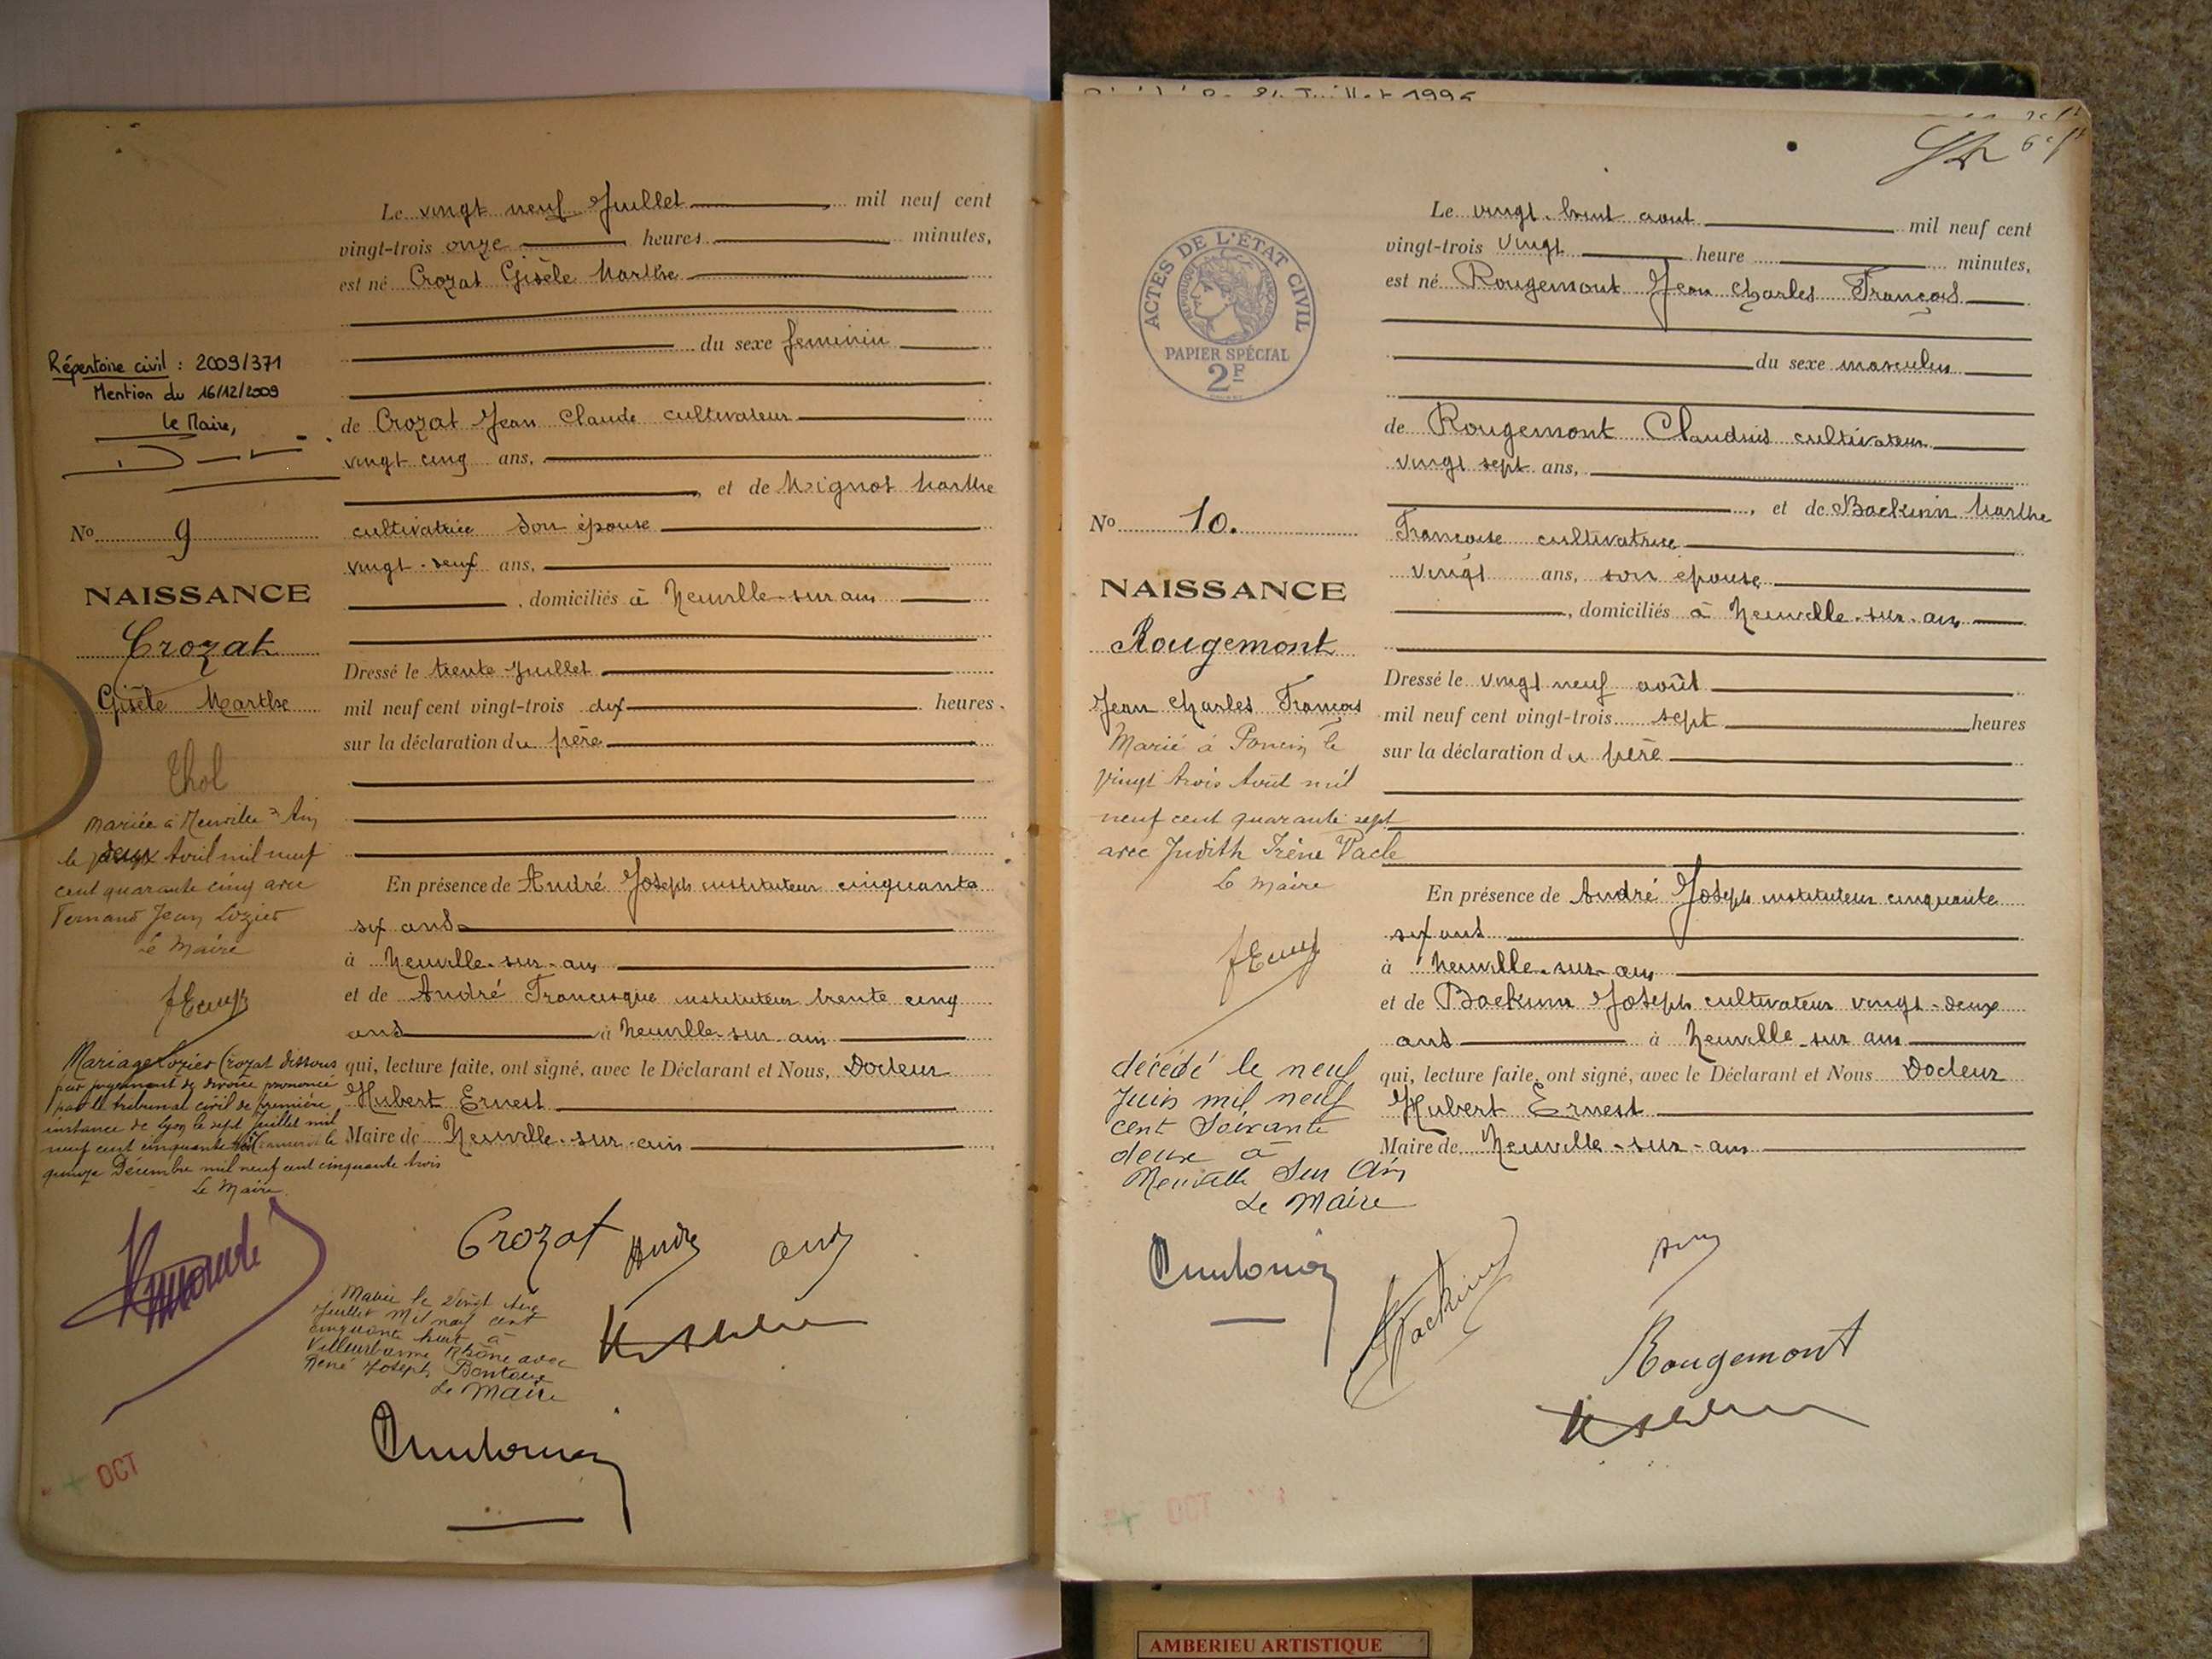 Le vingt neuf Juillet mil neuf cent
vingt-trois onze heures minutes,
est né Crozat Gisèle Marthe
du sexe feminin
de Crozat Jean Claude cultivateur
vingt cinq ans,
et de Mignot Marthe
cultivatrice son épouse
vingt-deux ans,
domiciliés à Neuville-sur-ain
Dressé le trente Juillet
mil neuf cent vingt-trois dix heures
sur la déclaration du père
En présence de André Joseph instituteur cinquante
six ans
à Neuville-sur-ain
et de André Francisque instituteur trente cinq
ans à Neuville-sur-ain
qui, lecture faite, ont signé, avec le Déclarant et Nous, Docteur
Hubert Ernest
Maire de Neuville-sur-ain
Répertoire civil : 2009/371
Mention du 16/12/2009
Le Maire,
No 9
NAISSANCE
Crozat
Gisèle Marthe
Thol
Mariée à Neuville s/ Ain
le deux Avril mil neuf
cent quarante cinq avec
Fernand Jean Lozier
Le Maire
Mariage Lozier Crozat dissous
par jugement de divorce prononcé
par le tribunal civil de première
instance de Lyon le sept juillet mil
neuf cent cinquante le
quinze Décembre mil neuf cent cinquante trois
Le Maire
Crozat André
Mariée le vingt
Juillet Mil neuf cent
cinquante huit à
Villeurbanne Rhône avec
René Joseph
Le Maire
OCT
Juillet 1995
6
ACTES DE L'ÉTAT CIVIL
RÉPUBLIQUE FRANÇAISE
PAPIER SPÉCIAL
2F
Le vingt-huit aout mil neuf cent
vingt-trois vingt heure minutes,
est né Rougemont Jean Charles François
du sexe masculin
de Rougemont Claudius cultivateur
vingt sept ans,
et de Baekinn Marthe
Francoise cultivatrice
vingt ans, son epouse
domiciliés à Neuville-sur-ain
Dressé le vingt neuf août
mil neuf cent vingt-trois sept heures
sur la déclaration du père
En présence de André Joseph instituteur cinquante
six ans
à Neuville-sur-ain
et de Baekinn Joseph cultivateur vingt-deux
ans à Neuville-sur ain
qui, lecture faite, ont signé, avec le Déclarant et Nous Docteur
Hubert Ernest
Maire de Neuville-sur-ain
No 10.
NAISSANCE
Rougemont
Jean Charles François
Marié à Poncin le
vingt trois Août mil
neuf cent quarante sept
avec Judith Irène Vacle
Le Maire
décédé le neuf
Juin mil neuf
cent soixante
deux à
Neuville Sur Ain
Le Maire
Rougemont
OCT
AMBERIEU ARTISTIQUE